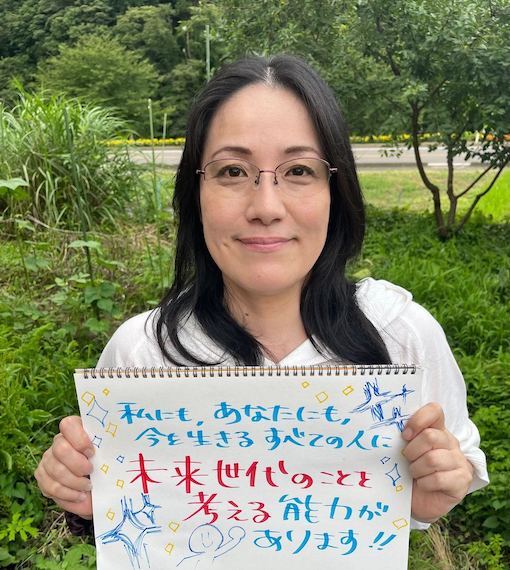 私にも、あなたにも、
今を生きるすべての人に
未来世代のことを
考える能力が
あります!!